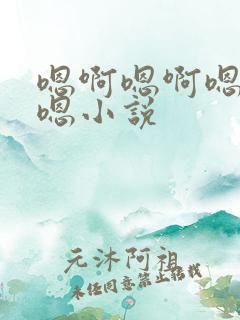 嗯啊嗯啊嗯
嗯小说
元沐阿祖
未经同意禁止转载